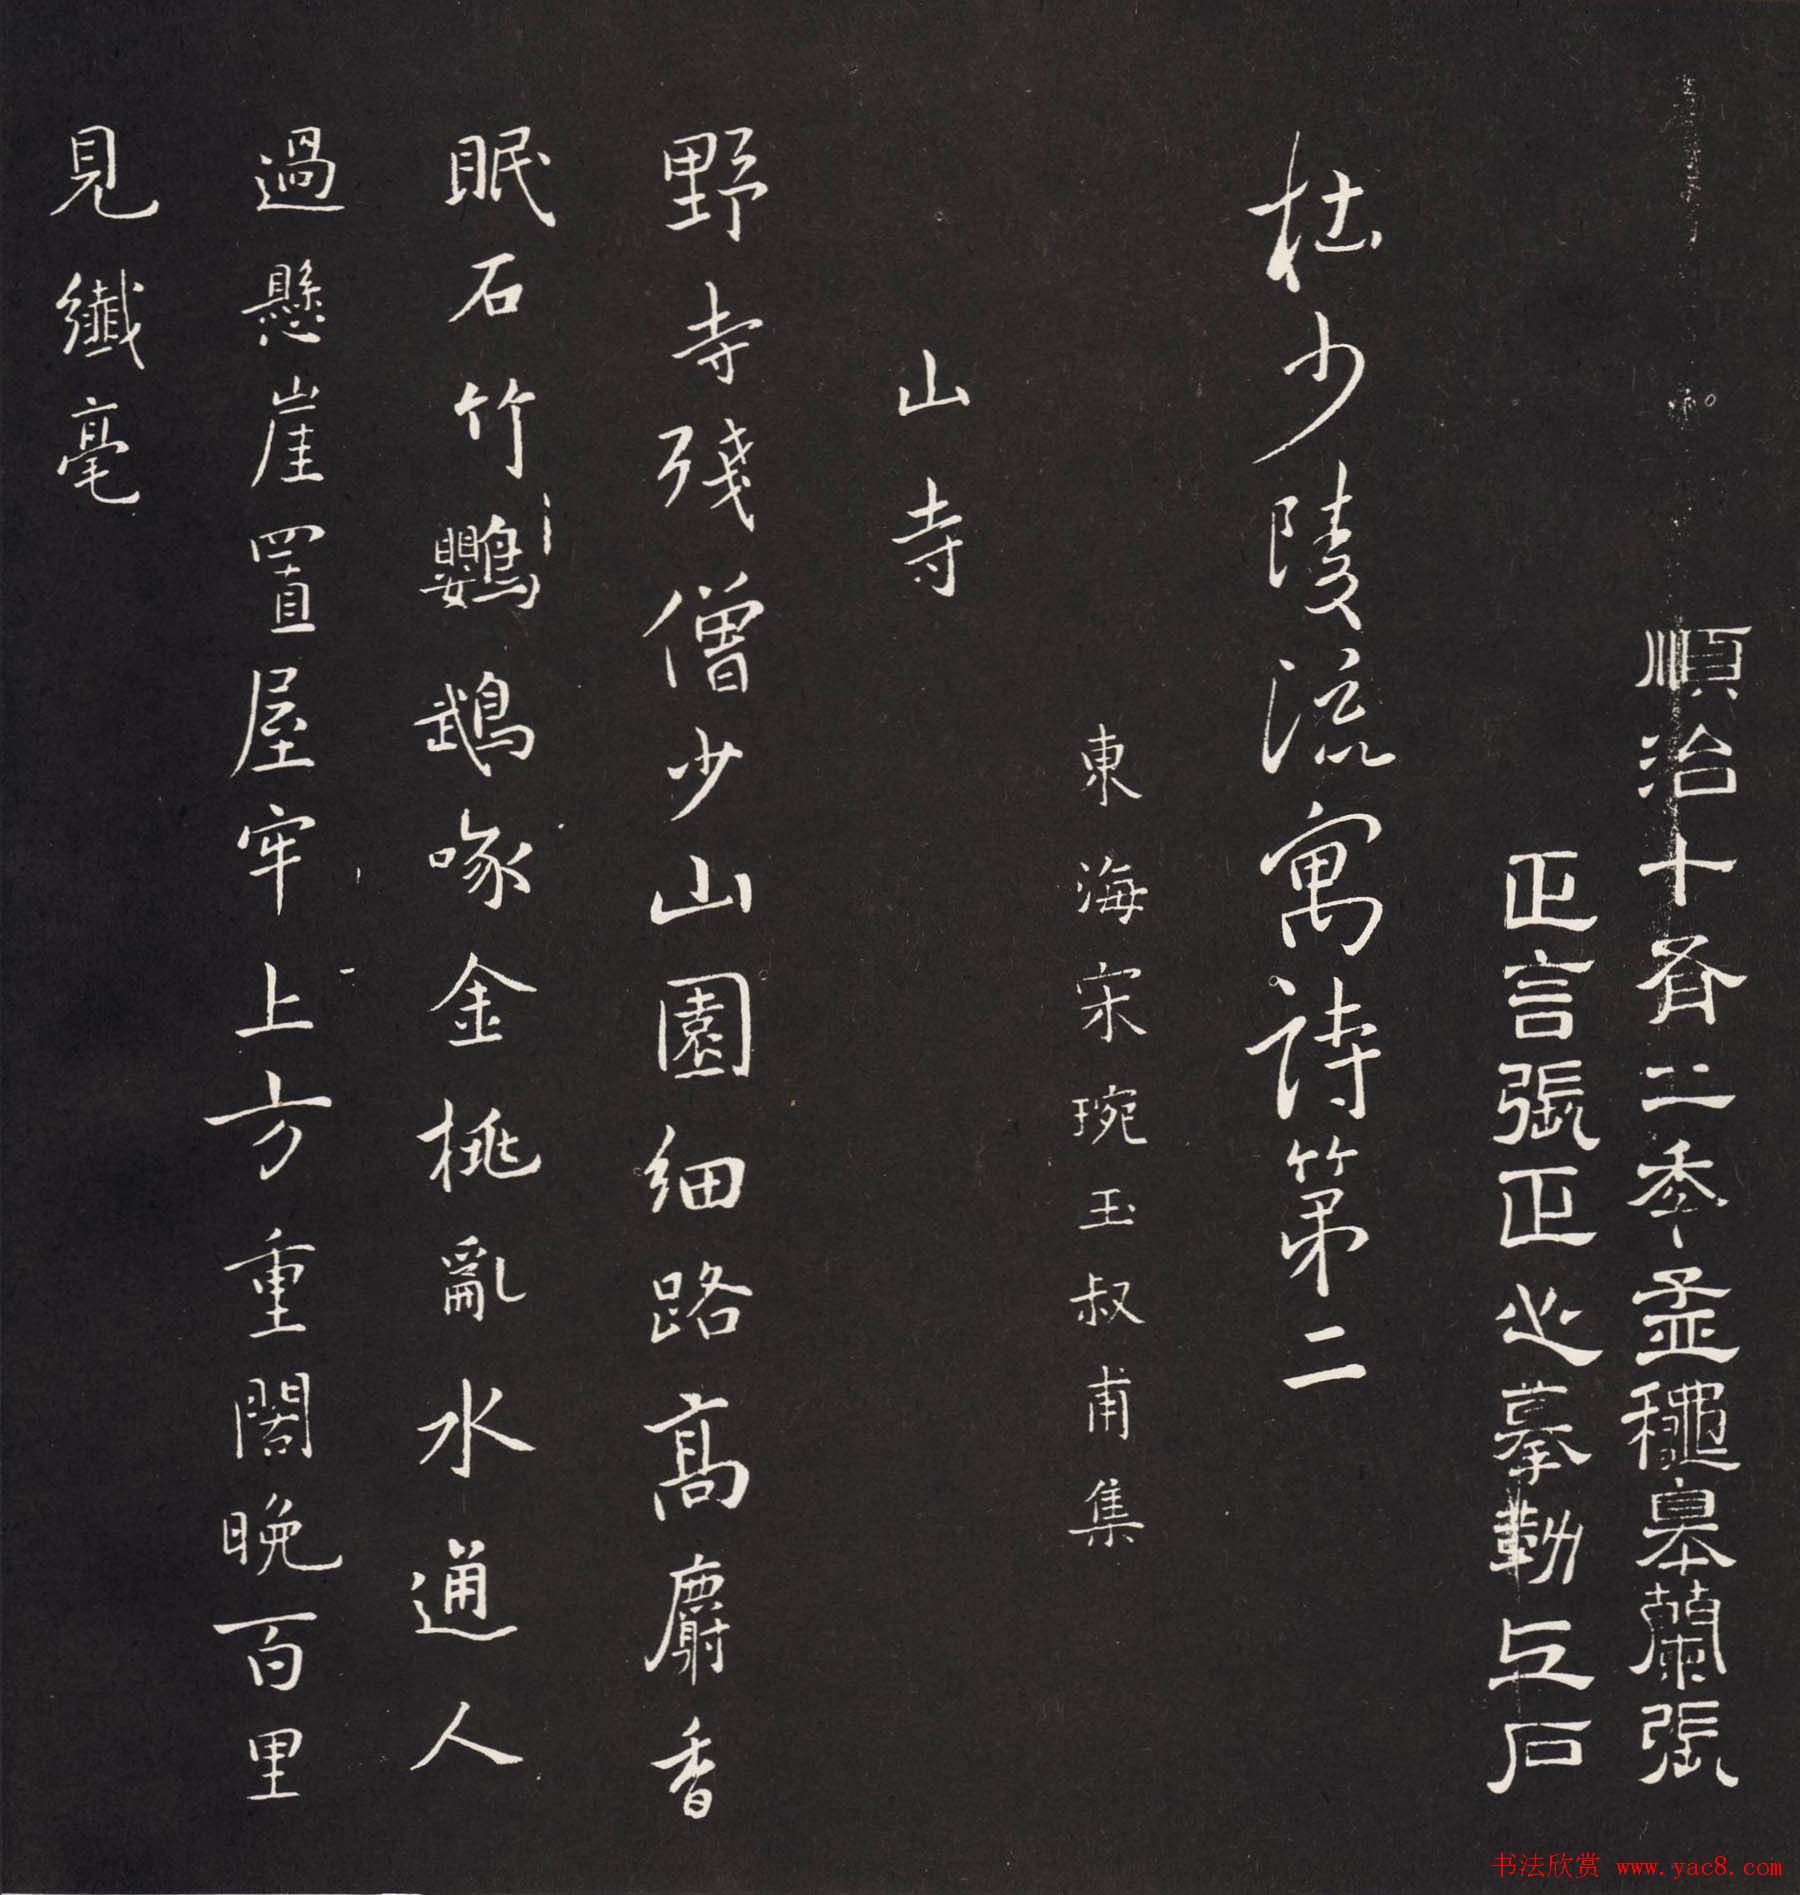 順治十有二秊孟穐皋蘭張
正言張正心摹勒上石
杜少陵流寓詩第二
東海宋琬玉叔甫集
山寺
野寺殘僧少山園細路高麝香
眠石竹鸚鵡啄金桃亂水通人
過懸崖置屋牢上方重閣晚百里
見纖毫
书法欣赏 www.yac8.com